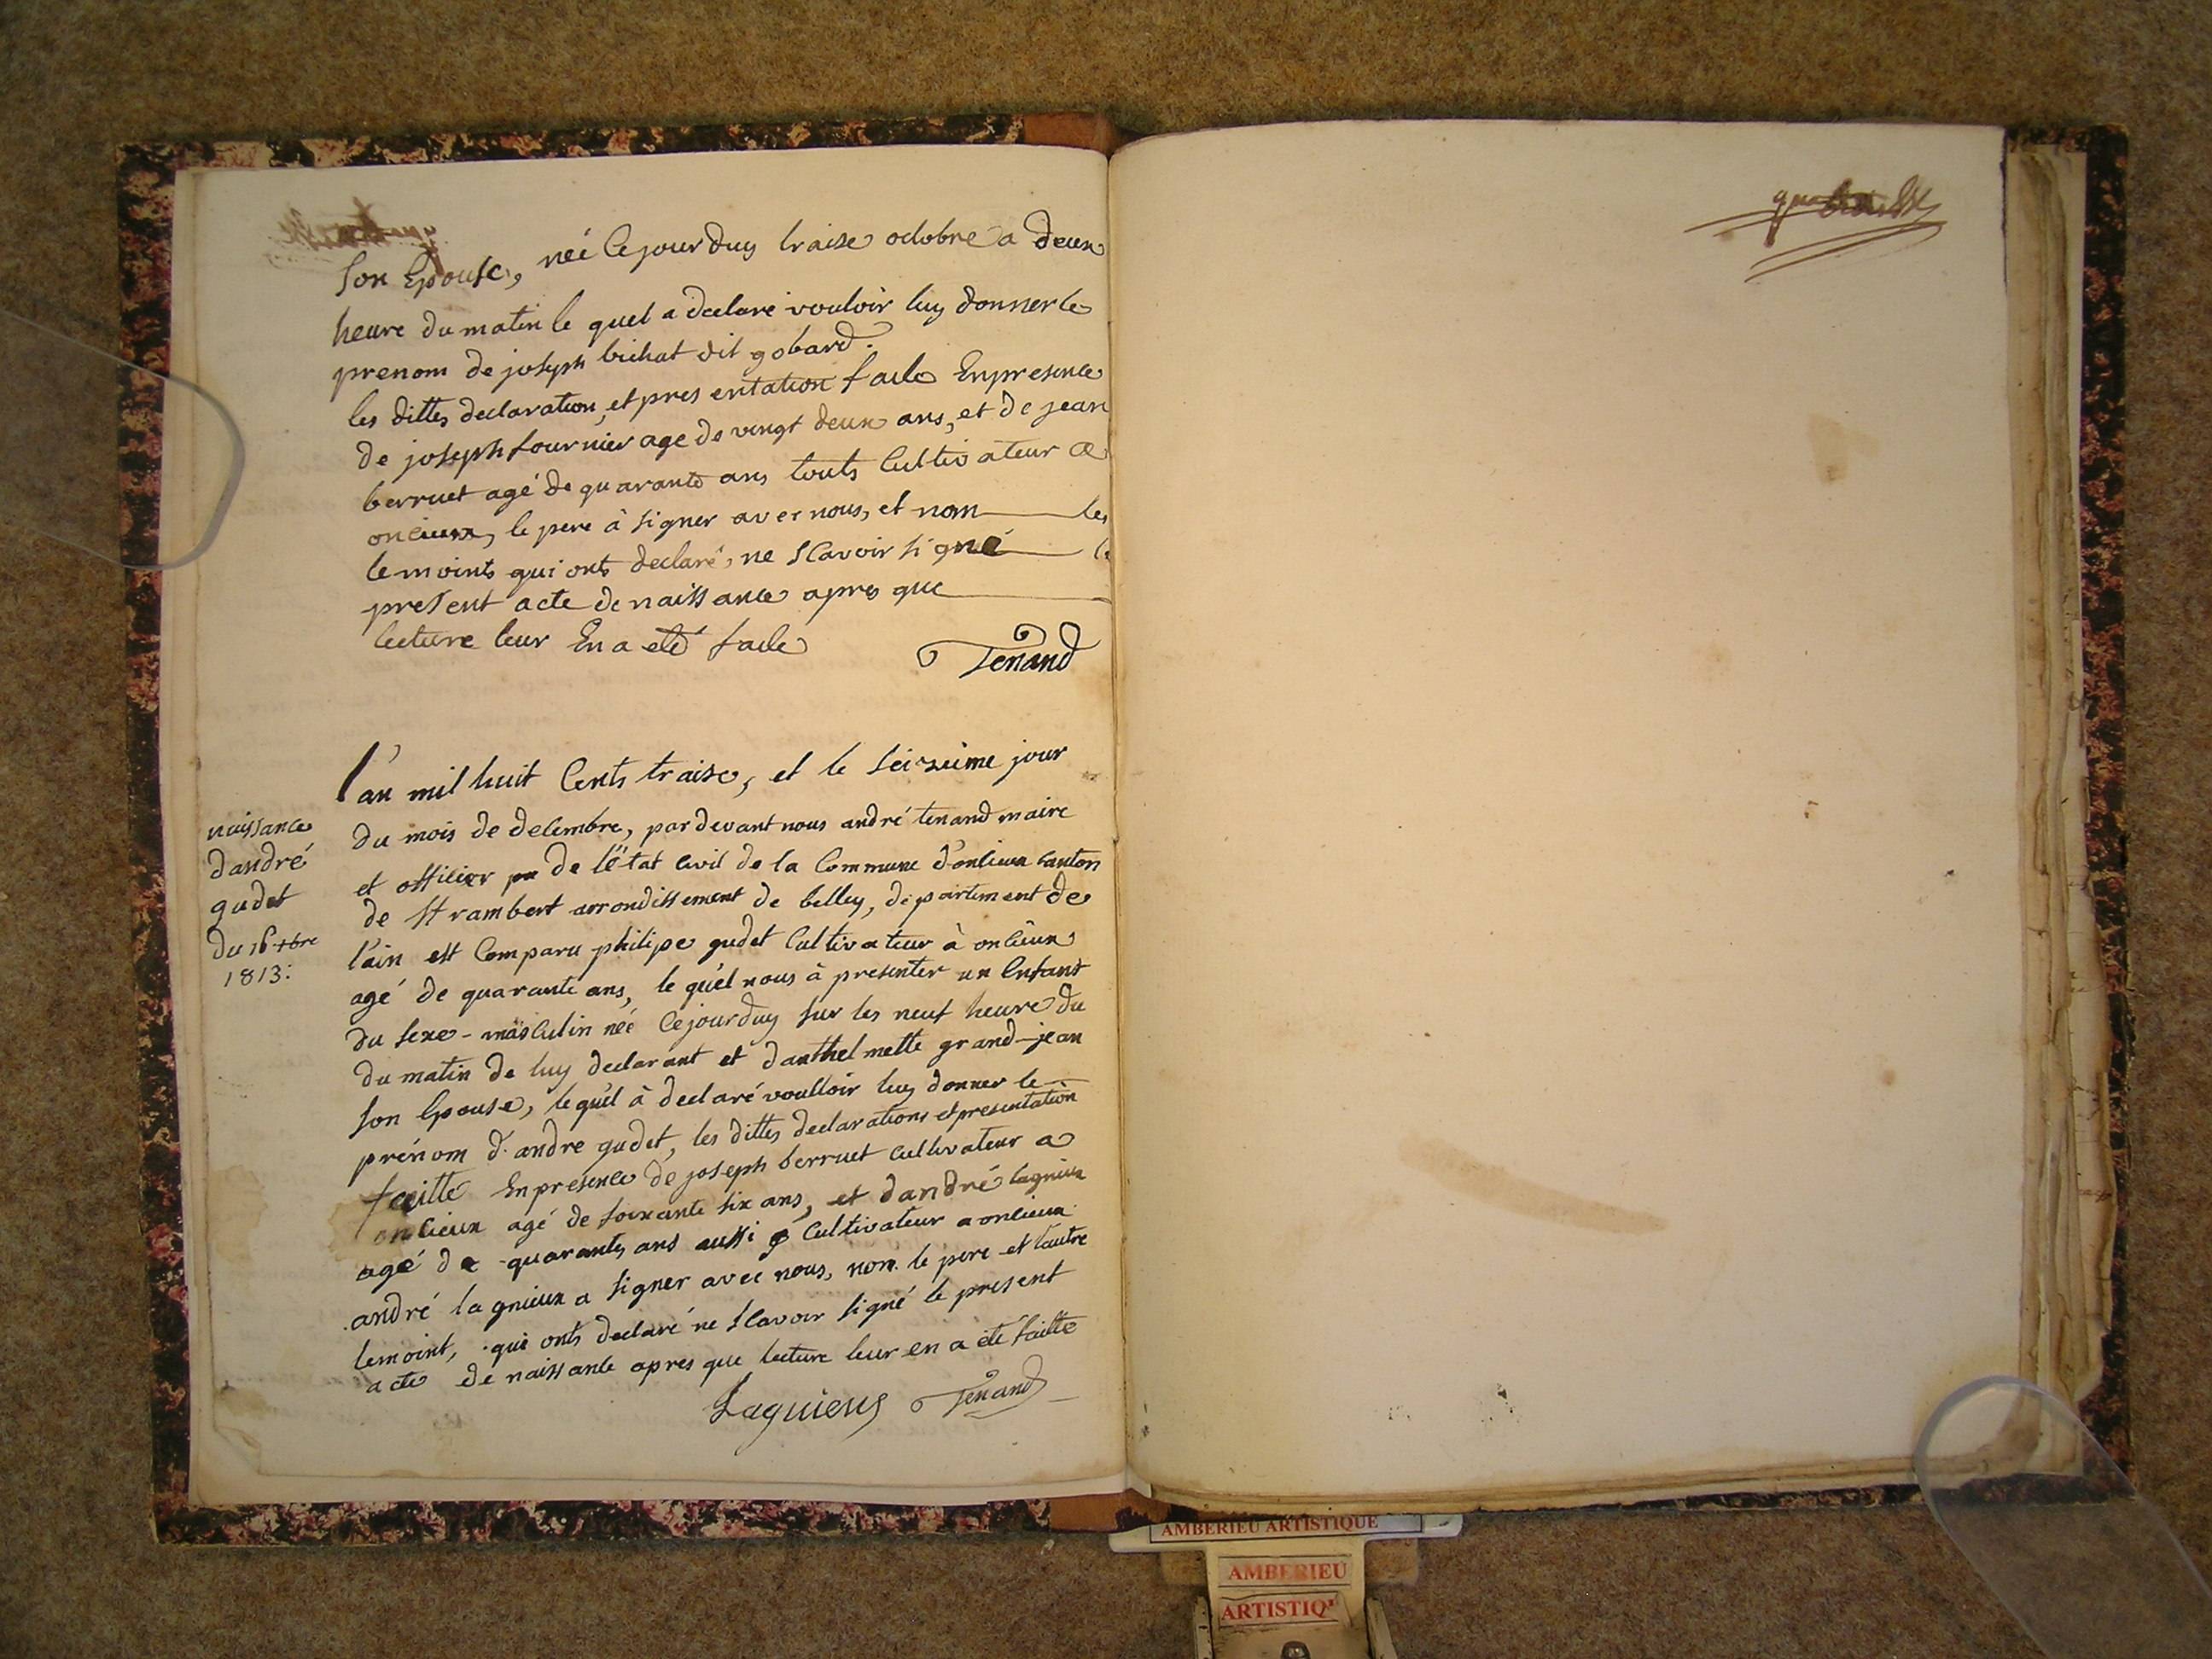 son Epouse, née Cejourduy traise octobre a deux
heure du matin le quel a declaré vouloir luy donner le
prenom de joseph bichat dit gobard.
les dittes declaration, et presentation faite En presence
de joseph fournier age de vingt deux ans, et de jean
berruet agé de quarante ans touts Cultivateur a
oncieux, le pere à signer avec nous, et nom les
temoints qui onts declaré, ne sCavoir signé le
present acte de naissance apres que
lecture leur En a eté faite
Tenand
l'an mil huit Cents traise, et le seizieme jour
du mois de decembre, pardevant nous andré tenand maire
et officier de l'état Civil de la Commune d'oncieux Canton
de st rambert arrondissement de belley, departement de
l'ain est Comparu philipe gudet Cultivateur à oncieux
agé de quarante ans, le quél nous à presenter un Enfant
du sexe - masculin née Cejourduy sur les neuf heure du
du matin de luy declarant et danthelmette grand-jean
son Epouse, le quél à declaré voulloir luy donner le
prénom d'andre gudet, les dittes declarations et presentation
faitte En presence de joseph berruet Cultivateur a
oncieux agé de soixante six ans, et dandré lagnieux
agé de quarante ans aussi Cultivateur a oncieux
andré lagnieux a signer avec nous, non le pere et lautre
temoint, qui onts declaré ne sCavoir signé le present
acte de naissance apres que lecture leur en a été faitte
Lagnieux Tenand
naissance
dandré
gudet
du 16 xbre
1813:
AMBERIEU ARTISTIQUE
AMBERIEU
ARTISTIQ